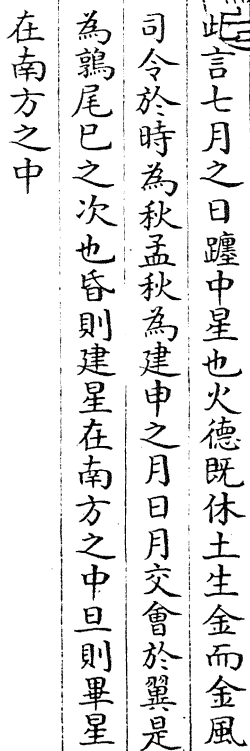 此言七月之日躔中星也火德既休土生金而金風
司令於時為秋孟秋為建申之月日月交會於翼是
為鶉尾巳之次也昏則建星在南方之中旦則畢星
在南方之中